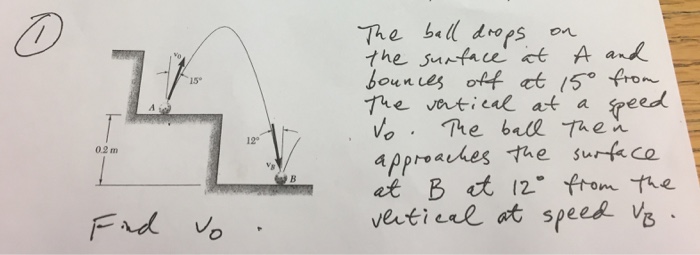 1
The ball drops on
the surface at A and
bounces off at 15° from
the vertical at a speed
v₀. The ball then
approaches the surface
at B at 12° from the
vertical at speed v_B.
v₀
15°
A
0.2 m
12°
v_B
B
Find v₀.